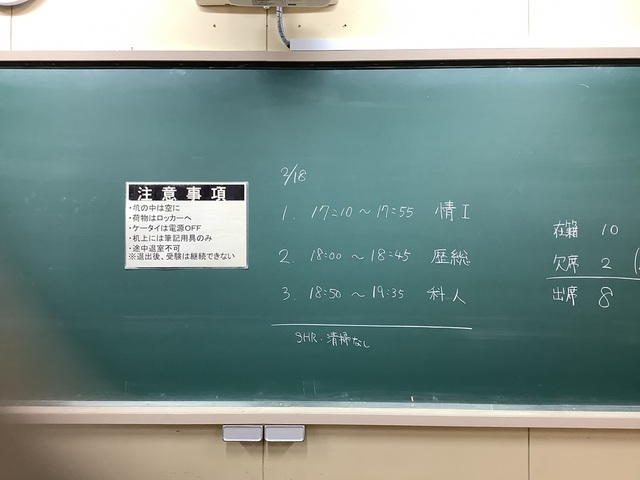 注意事項
・机の中は空に
・荷物はロッカーへ
・ケータイは電源OFF
・机上には筆記用具のみ
・途中退室不可
※退出後、受験は継続できない
2/18
1. 17:10～17:55 情I
2. 18:00～18:45 歴総
3. 18:50～19:35 科人
SHR・清掃なし
在籍 10
欠席 2 (
出席 8